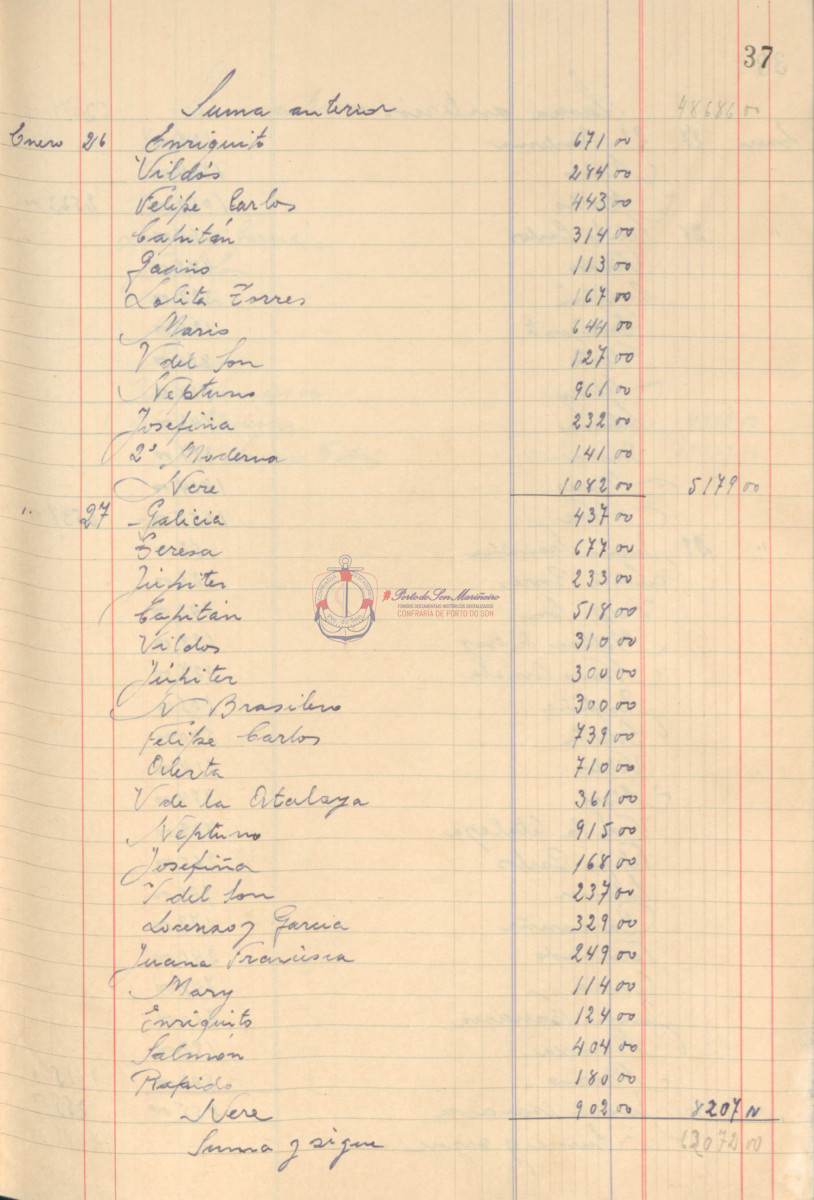 37
Suma anterior 48686 00
Enero 26 Enriquito 671 00
Vildós 284 00
Felipe Carlos 443 00
Capitán 314 00
113 00
Lolita Torres 167 00
Mario 644 00
V del Son 127 00
Neptuno 961 00
Josefiña 232 00
2ª Moderna 141 00
Nere 1082 00 5179 00
" 27 - Galicia 437 00
Teresa 677 00
Júpiter 233 00
Capitán 518 00
Vildos 310 00
Júpiter 300 00
N Brasileno 300 00
Felipe Carlos 739 00
Alerta 710 00
V de la Atalaya 361 00
Neptuno 915 00
Josefiña 168 00
V del Son 237 00
Lorenzo y Garcia 329 00
Juana Francisca 249 00
Mary 114 00
Enriquito 124 00
Salmón 404 00
Rapido 180 00
Nere 902 00 8207 00
Suma y sigue 62072 00
#PortodoSonMariñeiro
FONDOS DOCUMENTAIS HISTÓRICOS DIXITALIZADOS
CONFRARÍA DE PORTO DO SON